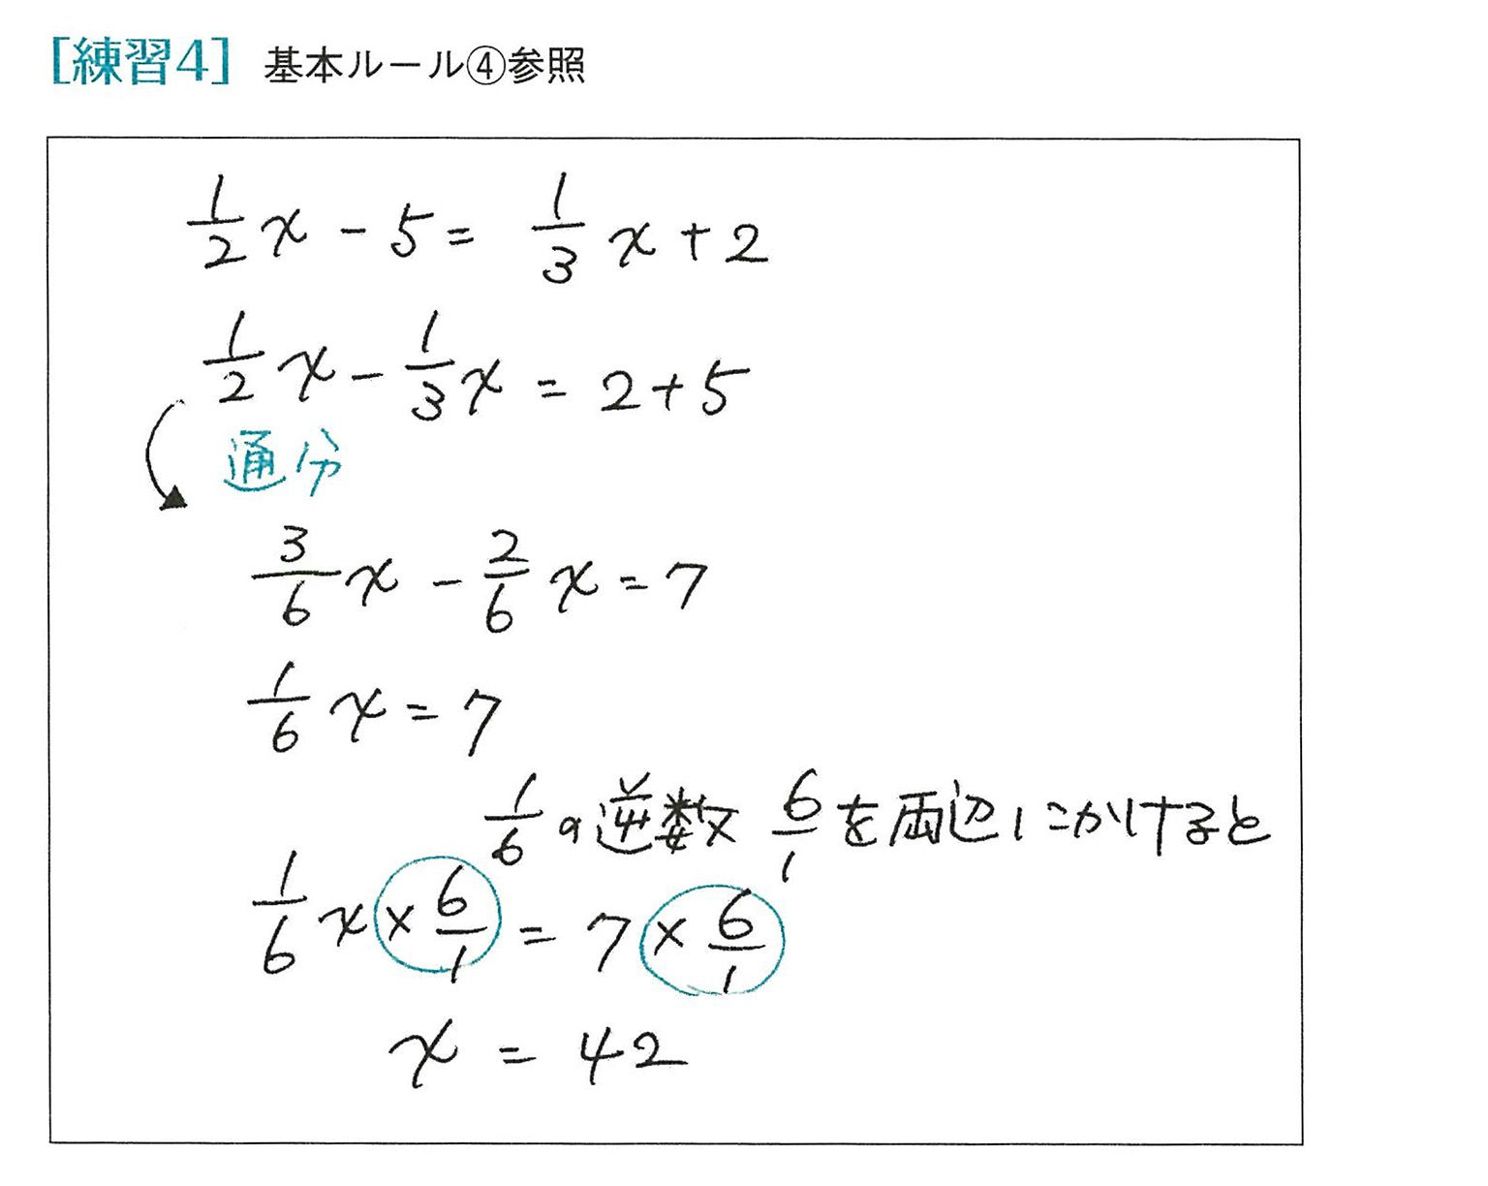 [練習4] 基本ルール④参照
1/2 x - 5 = 1/3 x + 2
1/2 x - 1/3 x = 2 + 5
通分
3/6 x - 2/6 x = 7
1/6 x = 7
1/6の逆数 6/1を両辺にかけると
1/6 x × 6/1 = 7 × 6/1
x = 42